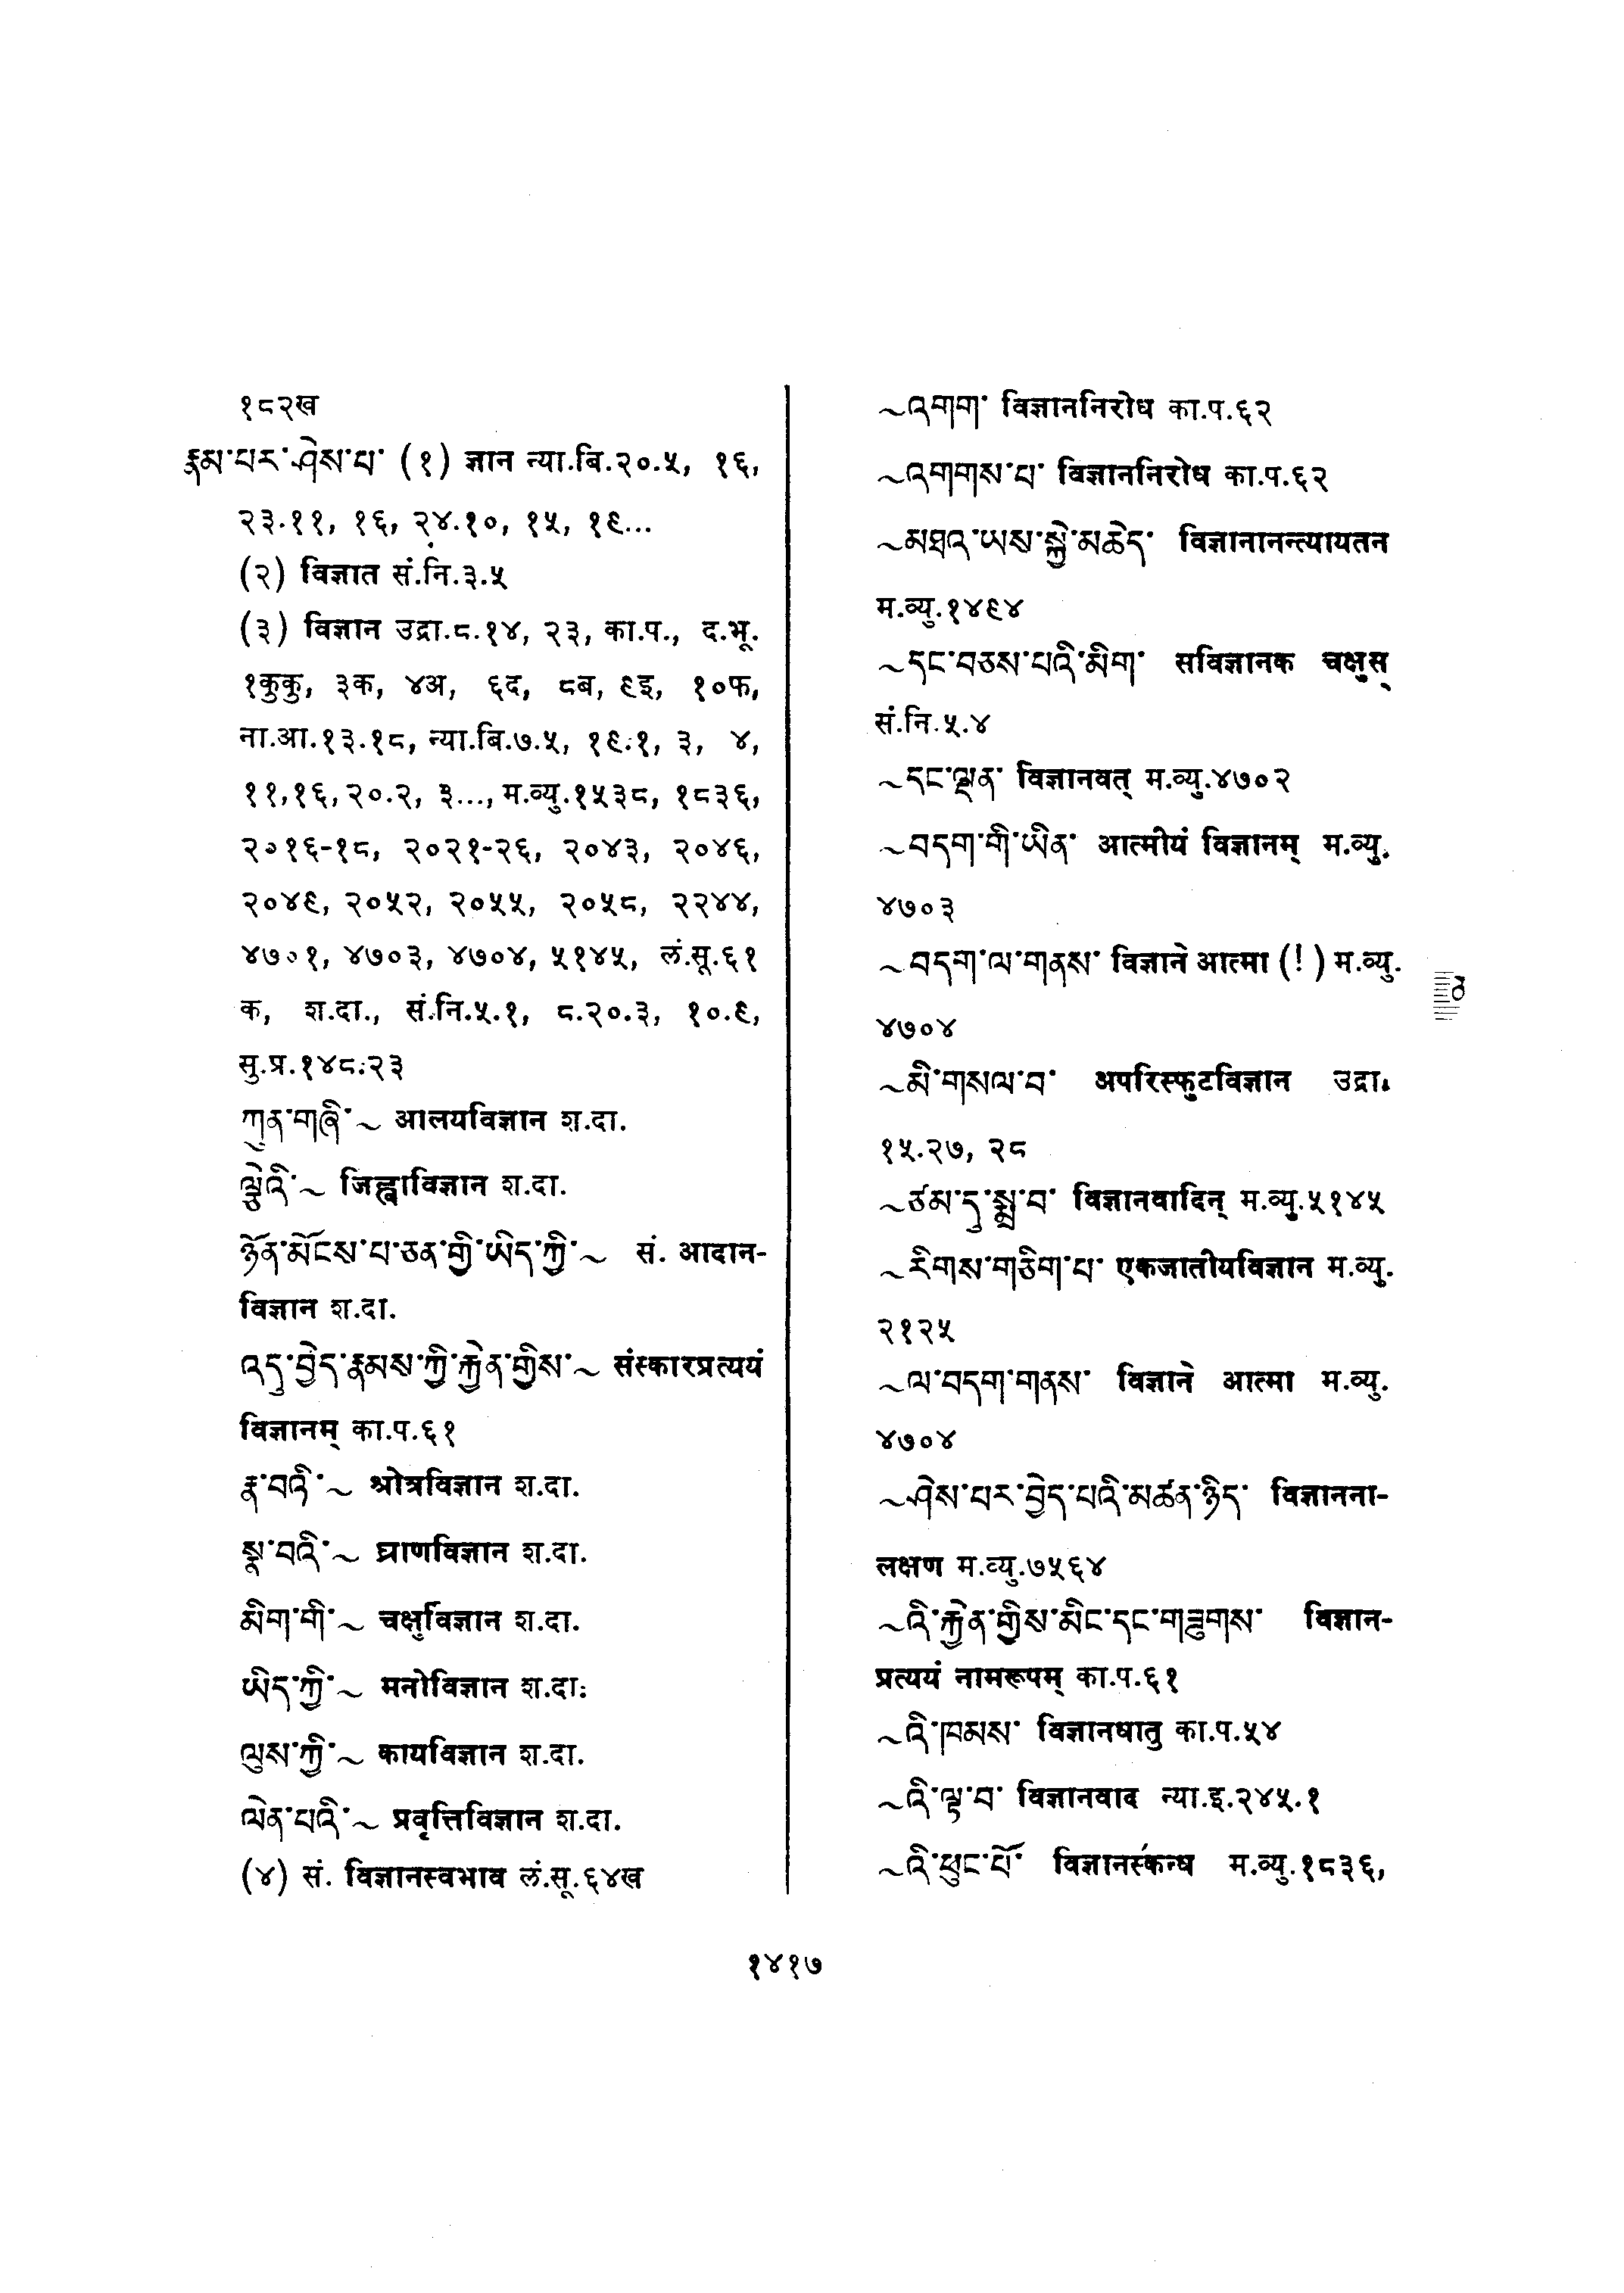 १८२ख
རྣམ་པར་ཤེས་པ་ (१) ज्ञान न्या.बि.२०.५, १६,
२३.११, १६, २४.१०, १५, १९...
(२) विज्ञात सं.नि.३.५
(३) विज्ञान उद्रा.८.१४, २३, का.प., द.भू.
१कुकु, ३क, ४अ, ६द, ८ब, ९इ, १०फ,
ना.आ.१३.१८, न्या.बि.७.५, १९.१, ३, ४,
११,१६,२०.२, ३..., म.व्यु.१५३८, १८३६,
२०१६-१८, २०२१-२६, २०४३, २०४६,
२०४९, २०५२, २०५५, २०५८, २२४४,
४७०१, ४७०३, ४७०४, ५१४५, लं.सू.६१
क, श.दा., सं.नि.५.१, ८.२०.३, १०.९,
सु.प्र.१४८.२३
ཀུན་གཞི་~ आलयविज्ञान श.दा.
ལྕེའི་~ जिह्वाविज्ञान श.दा.
ཉོན་མོངས་པ་ཅན་གྱི་ཡིད་ཀྱི་~ सं. आदान-
विज्ञान श.दा.
འདུ་བྱེད་རྣམས་ཀྱི་རྐྱེན་གྱིས་~ संस्कारप्रत्ययं
विज्ञानम् का.प.६१
རྣ་བའི་~ श्रोत्रविज्ञान श.दा.
སྣ་བའི་~ घ्राणविज्ञान श.दा.
མིག་གི་~ चक्षुर्विज्ञान श.दा.
ཡིད་ཀྱི་~ मनोविज्ञान श.दा.
ལུས་ཀྱི་~ कायविज्ञान श.दा.
ལེན་པའི་~ प्रवृत्तिविज्ञान श.दा.
(४) सं. विज्ञानस्वभाव लं.सू.६४ख
~འགག་ विज्ञाननिरोध का.प.६२
~འགགས་པ་ विज्ञाननिरोध का.प.६२
~མཐའ་ཡས་སྐྱེ་མཆེད་ विज्ञानानन्त्यायतन
म.व्यु.१४९४
~དང་བཅས་པའི་མིག་ सविज्ञानक चक्षुस्
सं.नि.५.४
~དང་ལྡན་ विज्ञानवत् म.व्यु.४७०२
~བདག་གི་ཡིན་ आत्मीयं विज्ञानम् म.व्यु.
४७०३
~བདག་ལ་གནས་ विज्ञाने आत्मा (!) म.व्यु.
४७०४
~མི་གསལ་བ་ अपरिस्फुटविज्ञान उद्रा.
१५.२७, २८
~ཙམ་དུ་སྨྲ་བ་ विज्ञानवादिन् म.व्यु.५१४५
~རིགས་གཅིག་པ་ एकजातीयविज्ञान म.व्यु.
२१२५
~ལ་བདག་གནས་ विज्ञाने आत्मा म.व्यु.
४७०४
~ཤེས་པར་བྱེད་པའི་མཚན་ཉིད་ विज्ञानना-
लक्षण म.व्यु.७५६४
~འི་རྐྱེན་གྱིས་མིང་དང་གཟུགས་ विज्ञान-
प्रत्ययं नामरूपम् का.प.६१
~འི་ཁམས་ विज्ञानधातु का.प.५४
~འི་ལྟ་བ་ विज्ञानवाद न्या.इ.२४५.१
~འི་ཕུང་པོ་ विज्ञानस्कन्ध म.व्यु.१८३६,
१४१७